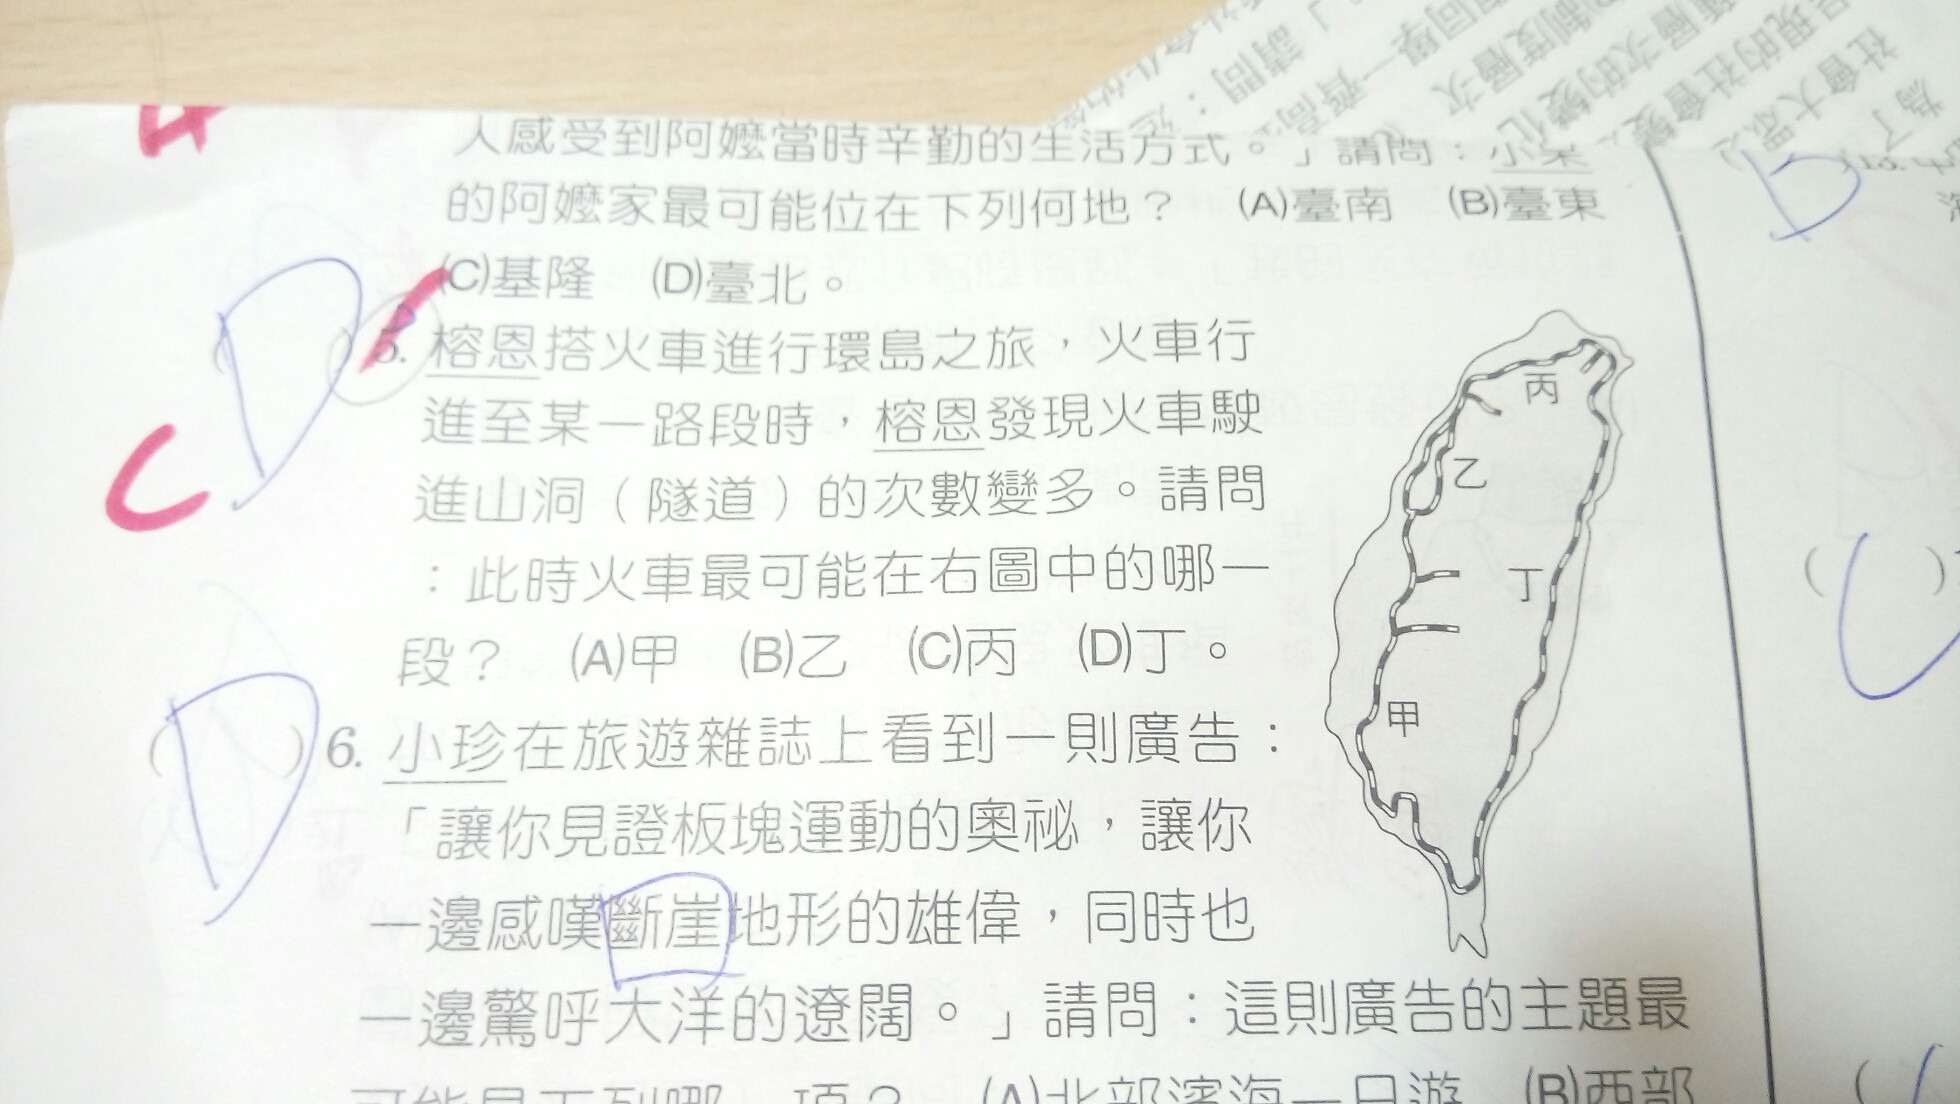 人感受到阿嬤當時辛勤的生活方式。」請問：小
的阿嬤家最可能位在下列何地？ (A)臺南 (B)臺東
(C)基隆 (D)臺北。
D
C
5. 榕恩搭火車進行環島之旅，火車行
進至某一路段時，榕恩發現火車駛
進山洞（隧道）的次數變多。請問
：此時火車最可能在右圖中的哪一
段？ (A)甲 (B)乙 (C)丙 (D)丁。
丙
乙
丁
甲
( D ) 6. 小珍在旅遊雜誌上看到一則廣告：
「讓你見證板塊運動的奧祕，讓你
一邊感嘆斷崖地形的雄偉，同時也
一邊驚呼大洋的遼闊。」請問：這則廣告的主題最
可能是下列哪一項？ (A)北部濱海一日遊 (B)西部
D
( C )
請問
一齊高
制度層次
層次的變化
現的社會變
社會大眾
為了